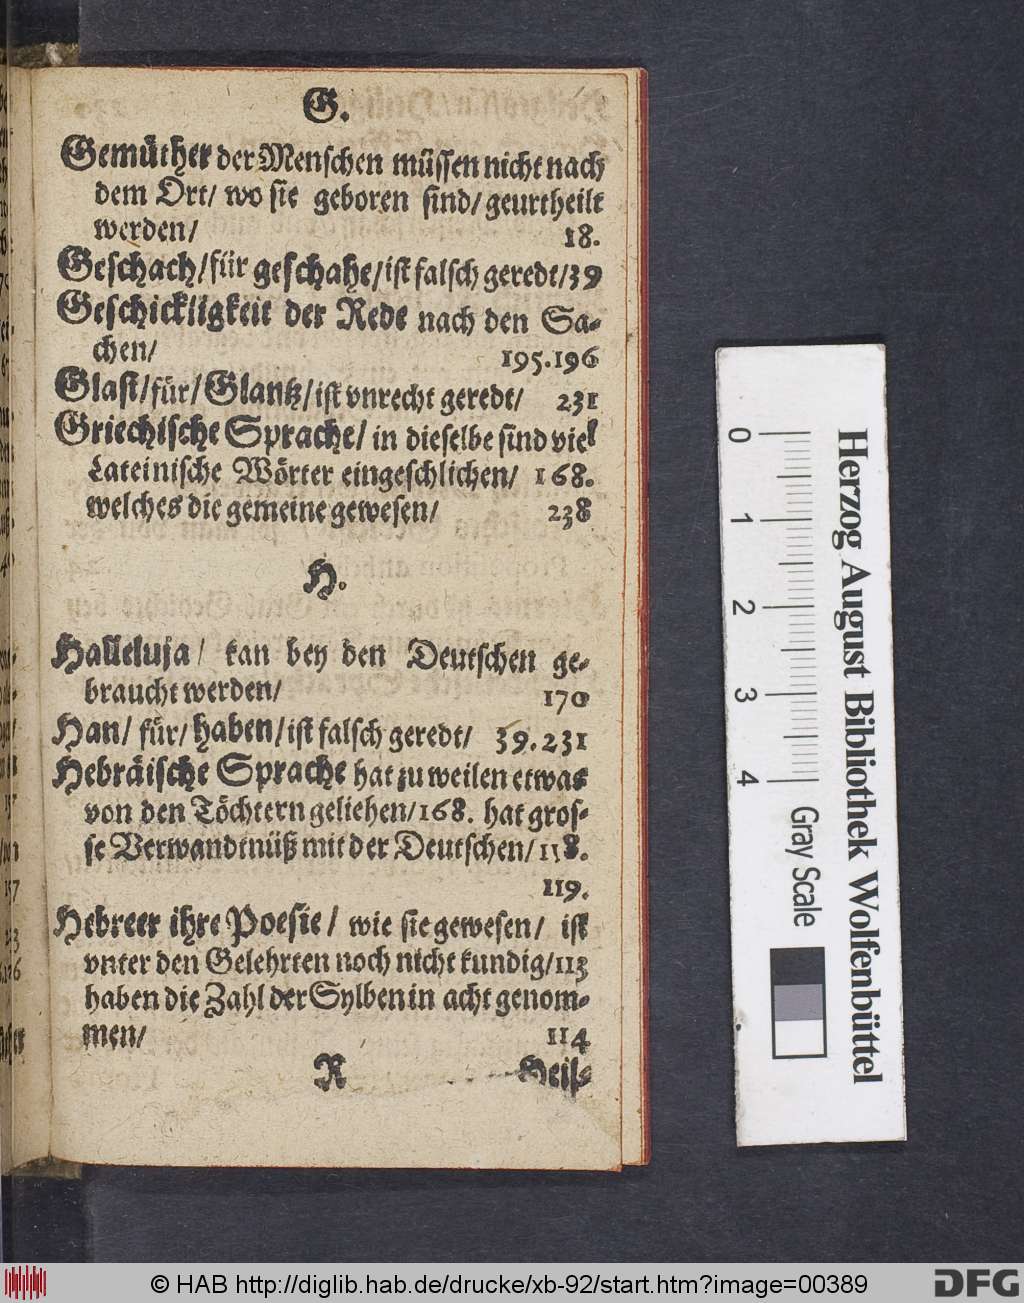 G.
Gemüther der Menschen müssen nicht nach
dem Ort/ wo sie geboren sind/ geurtheilt
werden/ 18.
Geschach/ für geschahe/ ist falsch geredt/ 39
Geschickligkeit der Rede nach den Sa-
chen/ 195.196
Glast/ für/ Glantz/ ist vnrecht geredt/ 231
Griechische Sprache/ in dieselbe sind viel
Lateinische Wörter eingeschlichen/ 168.
welches die gemeine gewesen/ 238
H.
Halleluja/ kan bey den Deutschen ge-
braucht werden/ 170
Han/ für/ haben/ ist falsch geredt/ 39.231
Hebräische Sprache hat zu weilen etwas
von den Töchtern geliehen/ 168. hat gros-
se Verwandtnüß mit der Deutschen/ 118.
119.
Hebreer ihre Poesie/ wie sie gewesen/ ist
vnter den Gelehrten noch nicht kundig/ 113
haben die Zahl der Sylben in acht genom-
men/ 114
R Heis-
0 1 2 3 4
Herzog August Bibliothek Wolfenbüttel
Gray Scale
© HAB http://diglib.hab.de/drucke/xb-92/start.htm?image=00389
DFG